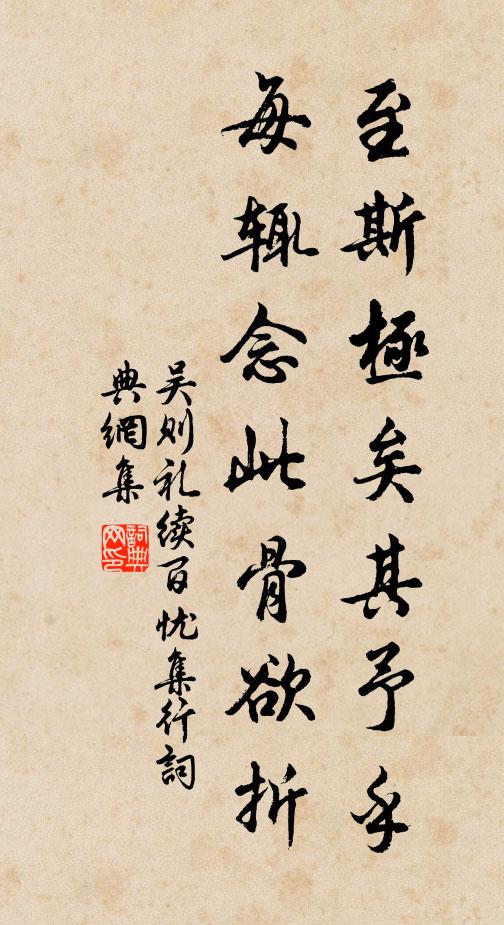 至斯極矣其予乎
每辄念此骨欲折
吴则礼续百忧集行詞
典網集
詞典網印